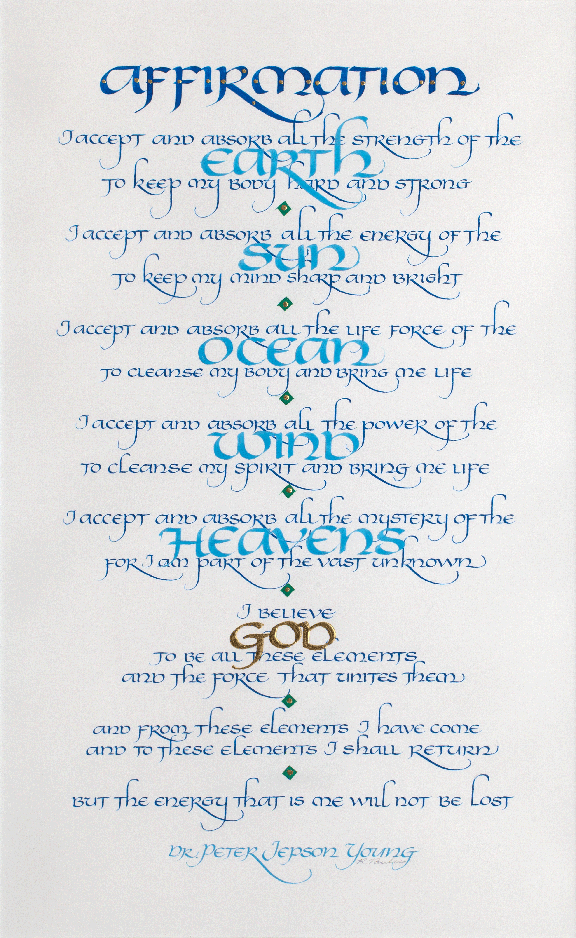 AFFIRMATION
I accept and absorb all the strength of the
EARTH
to keep my body hard and strong
I accept and absorb all the energy of the
SUN
to keep my mind sharp and bright
I accept and absorb all the life force of the
OCEAN
to cleanse my body and bring me life
I accept and absorb all the power of the
WIND
to cleanse my spirit and bring me life
I accept and absorb all the mystery of the
HEAVENS
for I am part of the vast unknown
I believe
GOD
to be all these elements
and the force that unites them
and from these elements I have come
and to these elements I shall return
but the energy that is me will not be lost
Dr. Peter Jepson Young